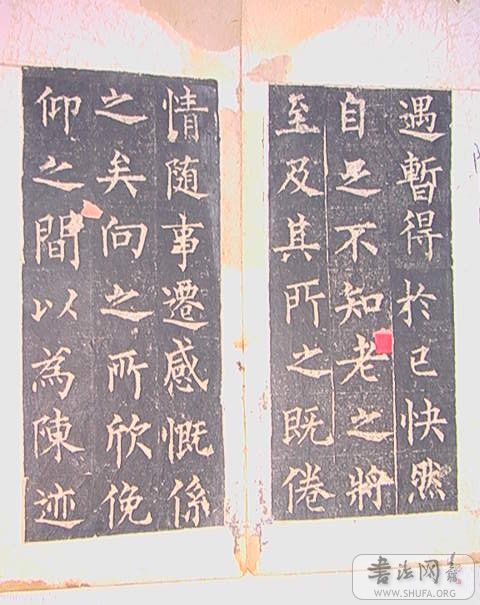 遇暫得於己快然
自足不知老之將
至及其所之既倦
情随事遷感慨係
之矣向之所欣俛
仰之間以為陳迹
书法网
WWW.SHUFA.ORG